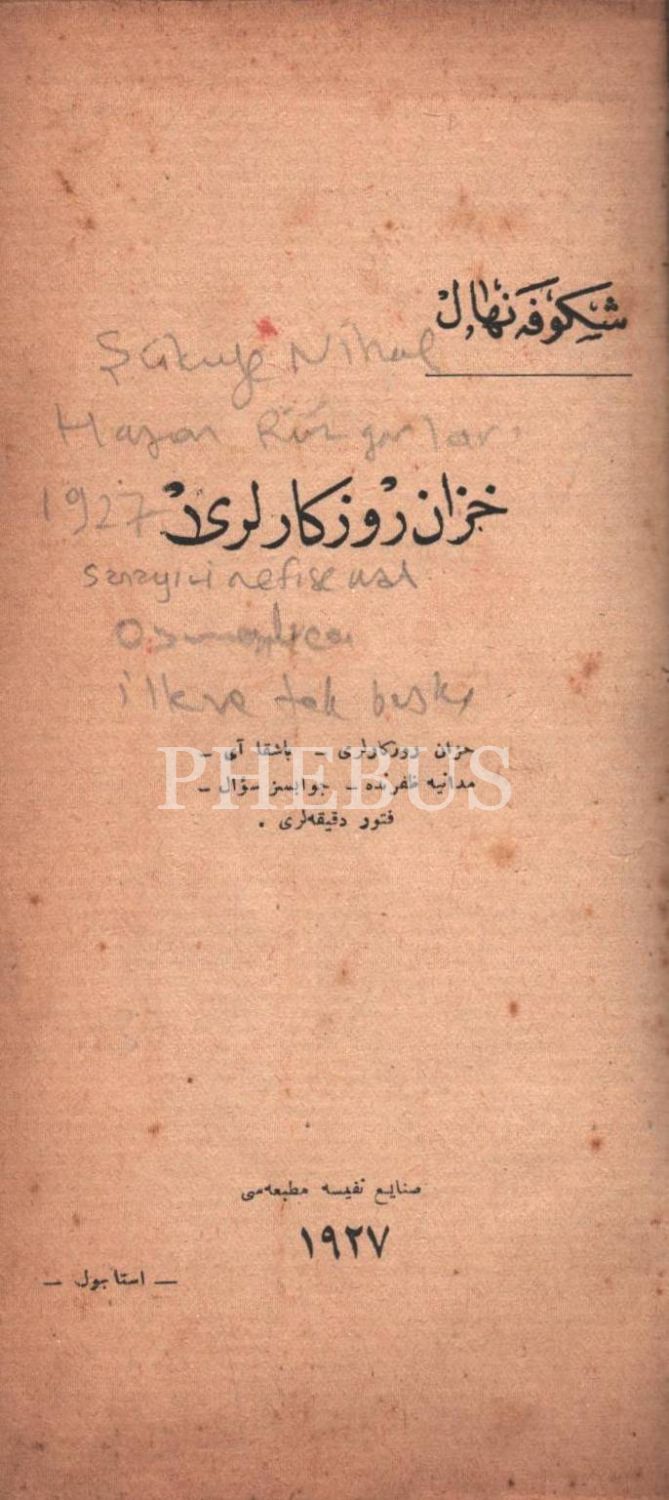 شكوفه نهال
Şükufe Nihal
Hazan Rüzgarları
خزان روزكارلری
1927
sanayii nefise mat
Osmanlıca
ilk ve tek baskı
خزان روزكارلری – باشقا آی –
PHEBUS
مدانیه ظفرنده – جوابسز سؤال –
فتور دقیقه‌لری .
صنایع نفیسه مطبعه‌سی
١٩٢٧
— استانبول —